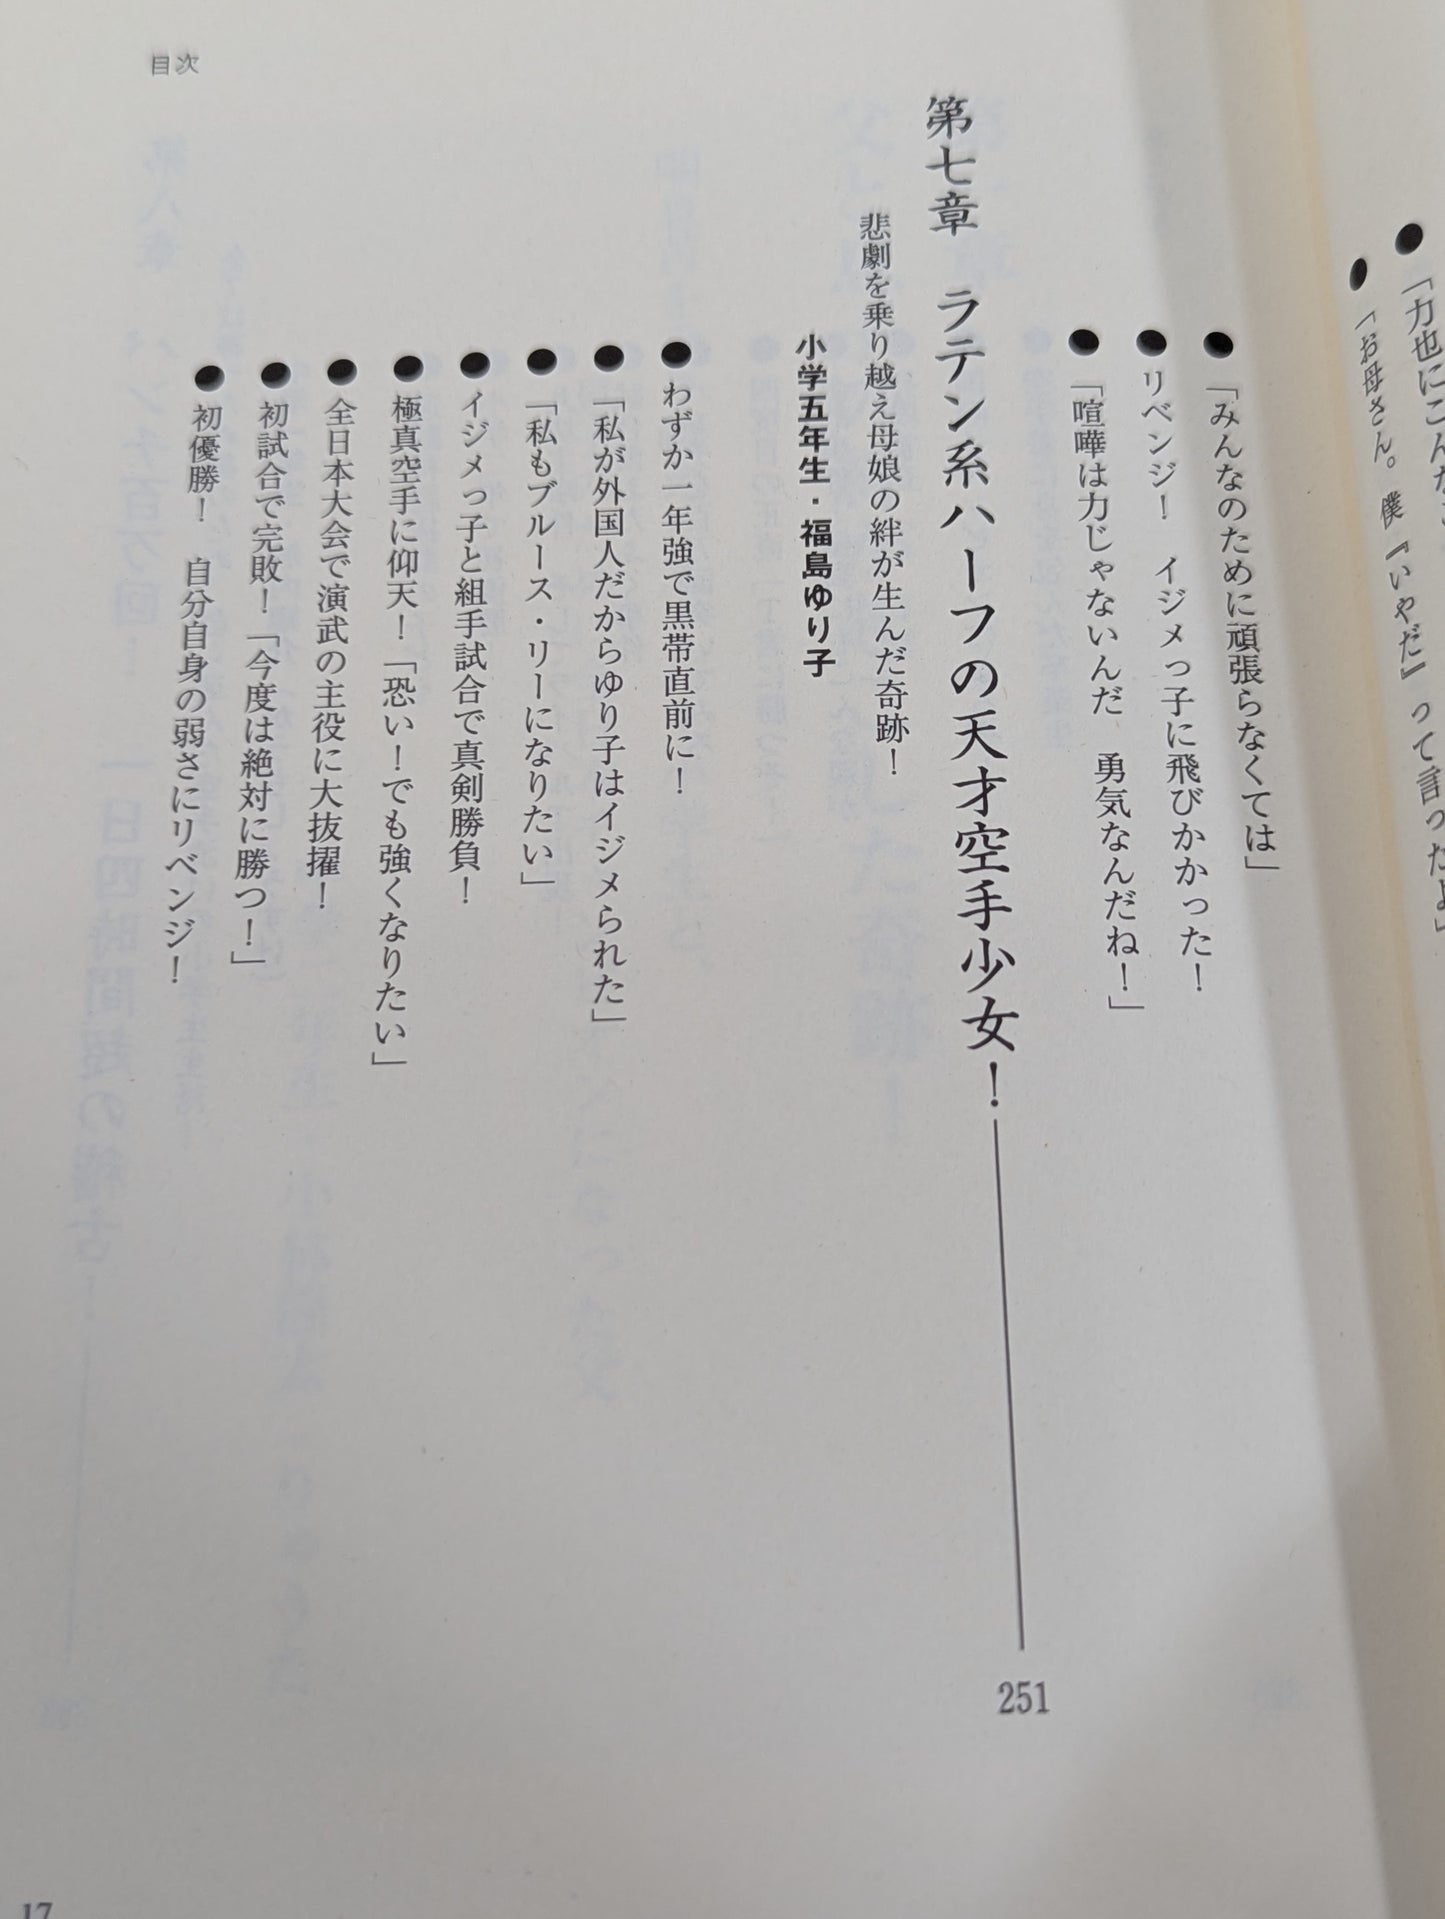 ●「力也にこんな
●「お母さん。僕『いやだ』って言ったよ」
●「みんなのために頑張らなくては」
●リベンジ！　イジメっ子に飛びかかった！
●「喧嘩は力じゃないんだ　勇気なんだね！」
第七章　ラテン系ハーフの天才空手少女！――――251
悲劇を乗り越え母娘の絆が生んだ奇跡！
小学五年生・福島ゆり子
●わずか一年強で黒帯直前に！
●「私が外国人だからゆり子はイジメられた」
●「私もブルース・リーになりたい」
●イジメっ子と組手試合で真剣勝負！
●極真空手に仰天！「恐い！でも強くなりたい」
●全日本大会で演武の主役に大抜擢！
●初試合で完敗！「今度は絶対に勝つ！」
●初優勝！　自分自身の弱さにリベンジ！
目次
17